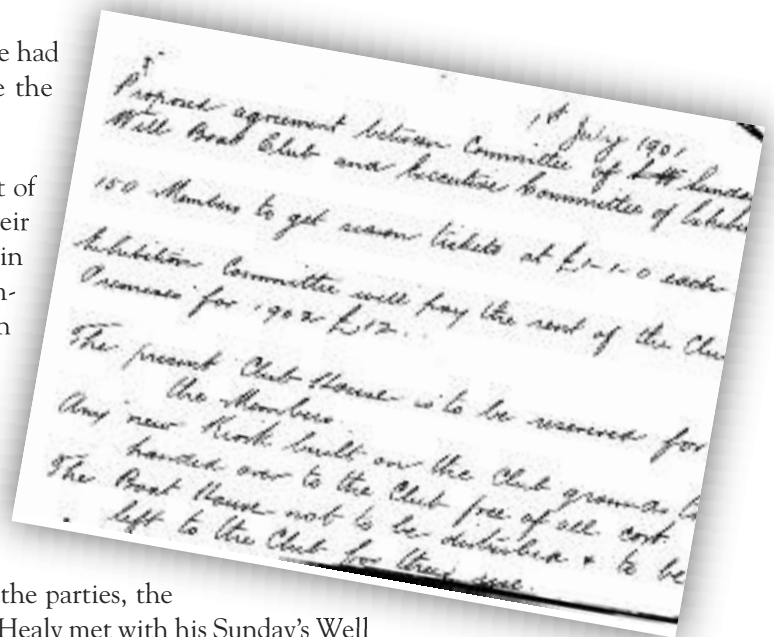 e had
e the
t of
eir
in
n-
n
1st July 1901
Proposed agreement between Committee of Sunda
Well Boat Club and Executive Committee of Exhibi
150 Members to get season tickets at £1-1-0 each
Exhibition Committee will pay the rent of the Clu
Premises for 1902 £12.
The present Club House is to be reserved for
the Members.
Any new Kiosk built on the Club grounds to
handed over to the Club free of all cost.
The Boat House not to be disturbed & to be
left to the Club for their use.
the parties, the
Healy met with his Sunday's Well